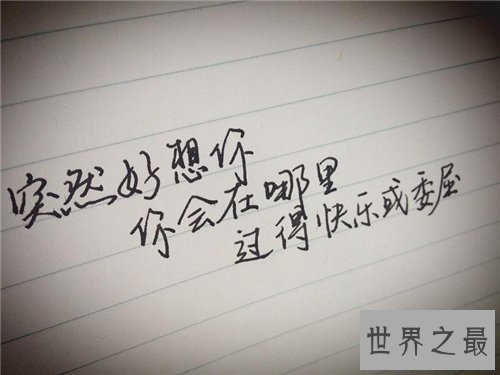 突然好想你
你会在哪里
过得快乐或委屈
世界之最